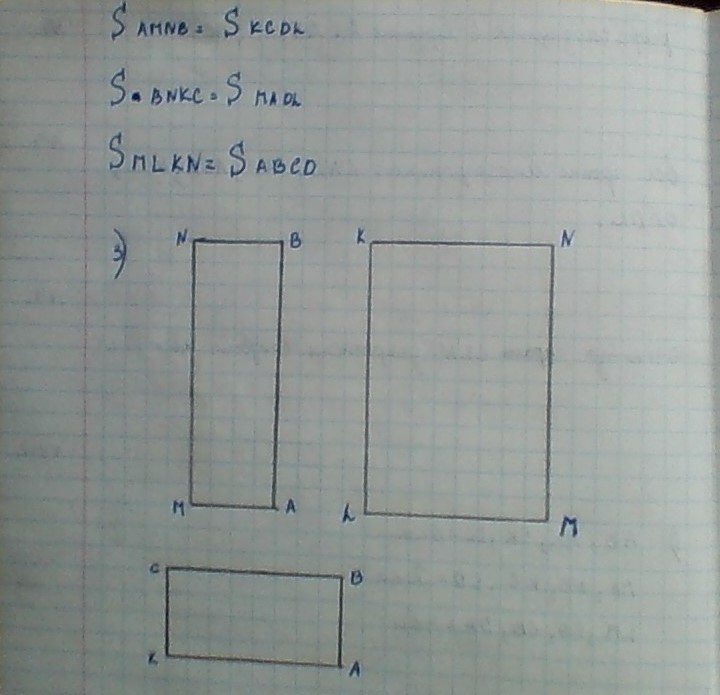 S AMNB = S KCDL
S BNKC = S MADL
S MLKN = S ABCD
3)
N B K N
M A L M
C B
K A